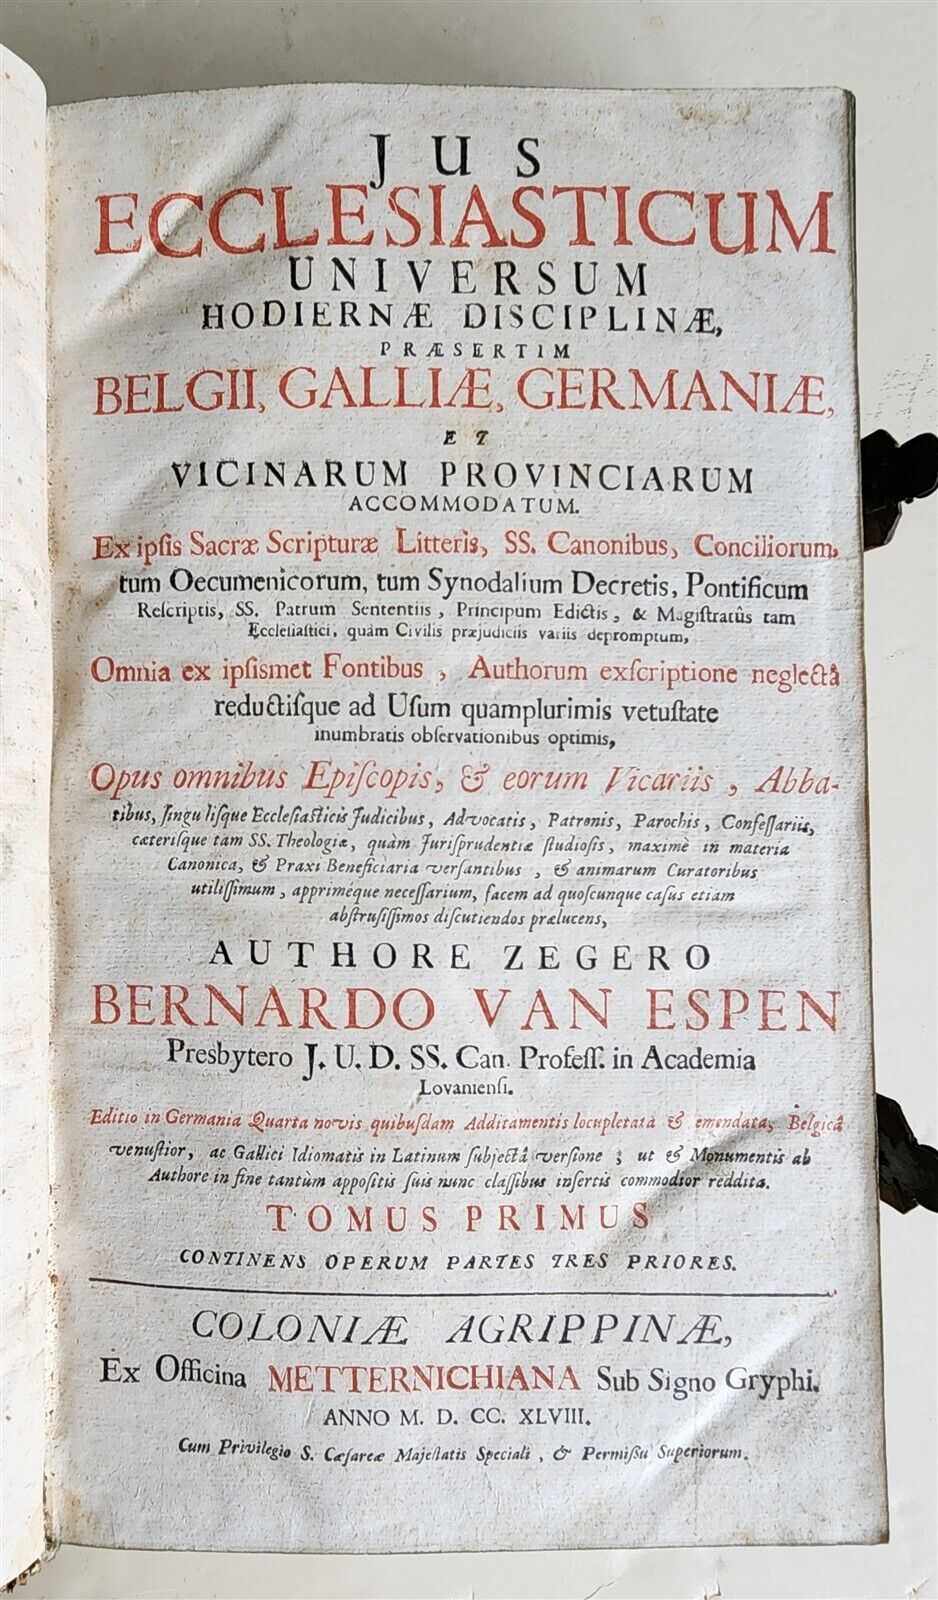 JUS
ECCLESIASTICUM
UNIVERSUM
HODIERNÆ DISCIPLINÆ,
PRÆSERTIM
BELGII, GALLIÆ, GERMANIÆ,
ET
VICINARUM PROVINCIARUM
ACCOMMODATUM.
Ex ipſis Sacræ Scripturæ Litteris, SS. Canonibus, Conciliorum,
tum Oecumenicorum, tum Synodalium Decretis, Pontificum
Reſcriptis, SS. Patrum Sententiis, Principum Edictis, & Magiſtratûs tam
Eccleſiaſtici, quàm Civilis præjudiciis variis depromptum,
Omnia ex ipſiſmet Fontibus, Authorum exſcriptione neglectâ
reductiſque ad Uſum quamplurimis vetuſtate
inumbratis obſervationibus optimis,
Opus omnibus Epiſcopis, & eorum Vicariis, Abba-
tibus, ſinguliſque Eccleſiaſticis Judicibus, Advocatis, Patronis, Parochis, Confeſſariis,
cæteriſque tam SS. Theologiæ, quàm Juriſprudentiæ ſtudioſis, maximè in materia
Canonica, & Praxi Beneficiaria verſantibus, & animarum Curatoribus
utiliſſimum, apprimèque neceſſarium, facem ad quoſcunque caſus etiam
abſtruſiſſimos diſcutiendos prælucens,
AUTHORE ZEGERO
BERNARDO VAN ESPEN
Presbytero J. U. D. SS. Can. Profeſſ. in Academia
Lovanienſi.
Editio in Germania Quarta novis quibuſdam Additamentis locupletata & emendata, Belgicâ
venuſtior, ac Gallici Idiomatis in Latinum ſubjectâ verſione; ut & Monumentis ab
Authore in fine tantùm appoſitis ſuis nunc claſſibus inſertis commodior reddita.
TOMUS PRIMUS
CONTINENS OPERUM PARTES TRES PRIORES.
COLONIÆ AGRIPPINÆ,
Ex Officina METTERNICHIANA Sub Signo Gryphi.
ANNO M. D. CC. XLVIII.
Cum Privilegio S. Cæſareæ Majeſtatis Speciali, & Permiſſu Superiorum.